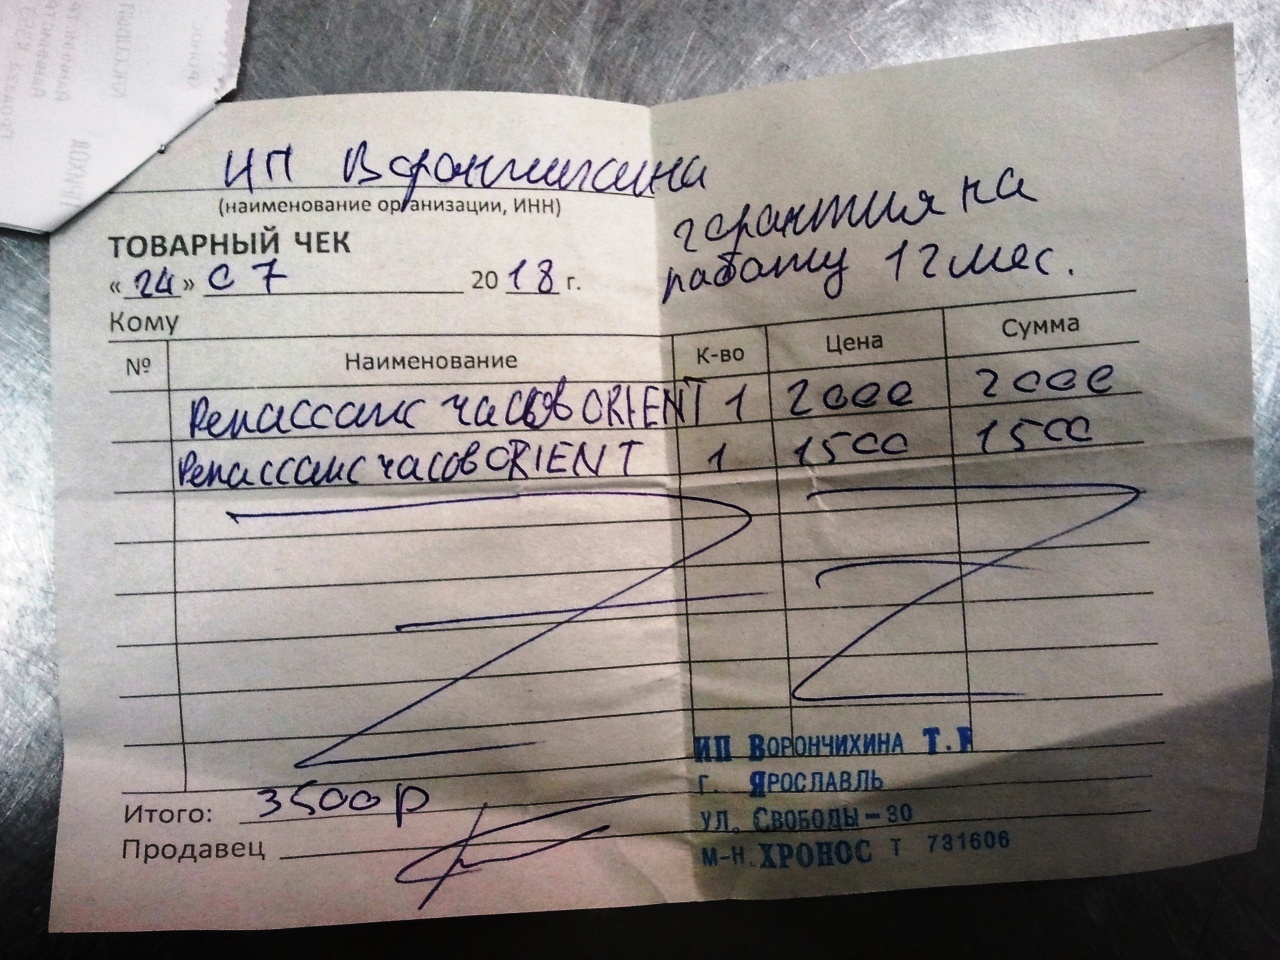 ИП Ворончихина
(наименование организации, ИНН)
ТОВАРНЫЙ ЧЕК
гарантия на
работу 12 мес.
« 24 » 07 2018 г.
Кому
№ Наименование К-во Цена Сумма
часов ORIENT 1 2000 2000
часов ORIENT 1 1500 1500
Итого: 3500р
Продавец
ИП ВОРОНЧИХИНА Т.
Г. ЯРОСЛАВЛЬ
УЛ. СВОБОДЫ-30
М-Н. ХРОНОС Т 731606